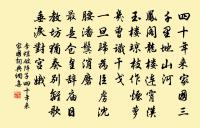 四十年來家國三
千里地山河
鳳閣龍樓連霄漢
玉樹瓊枝作烟蘿
幾曾識干戈
一旦歸爲臣虜沈
腰潘鬢消磨
最是倉皇辭廟日
教坊猶奏別離歌
垂淚對宮娥
李煜破陣子四十年來
家國詞典網集